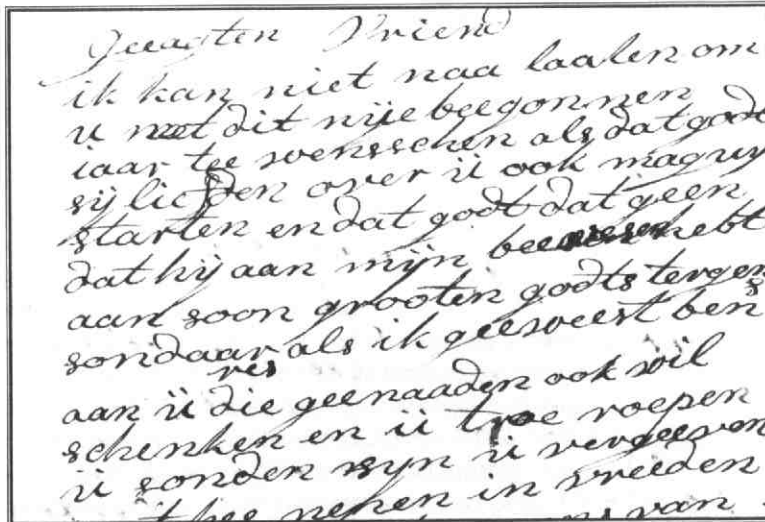 Geeagten Vriend
ik kan niet naa laaten om
u met dit nije beegonnen
iaar tee wensschen als dat godt
sij lieden over ü ook mag uyt
starten en dat godt dat geen
dat hij aan mijn beeweesen hebt
aan soon grooten godts tergens
sondaar als ik geeweest ben
res
aan ü die geenaaden ook wil
schenken en ü troe roepen
ü sonden syn ü vergeeven
hee nenen in vreeden
van